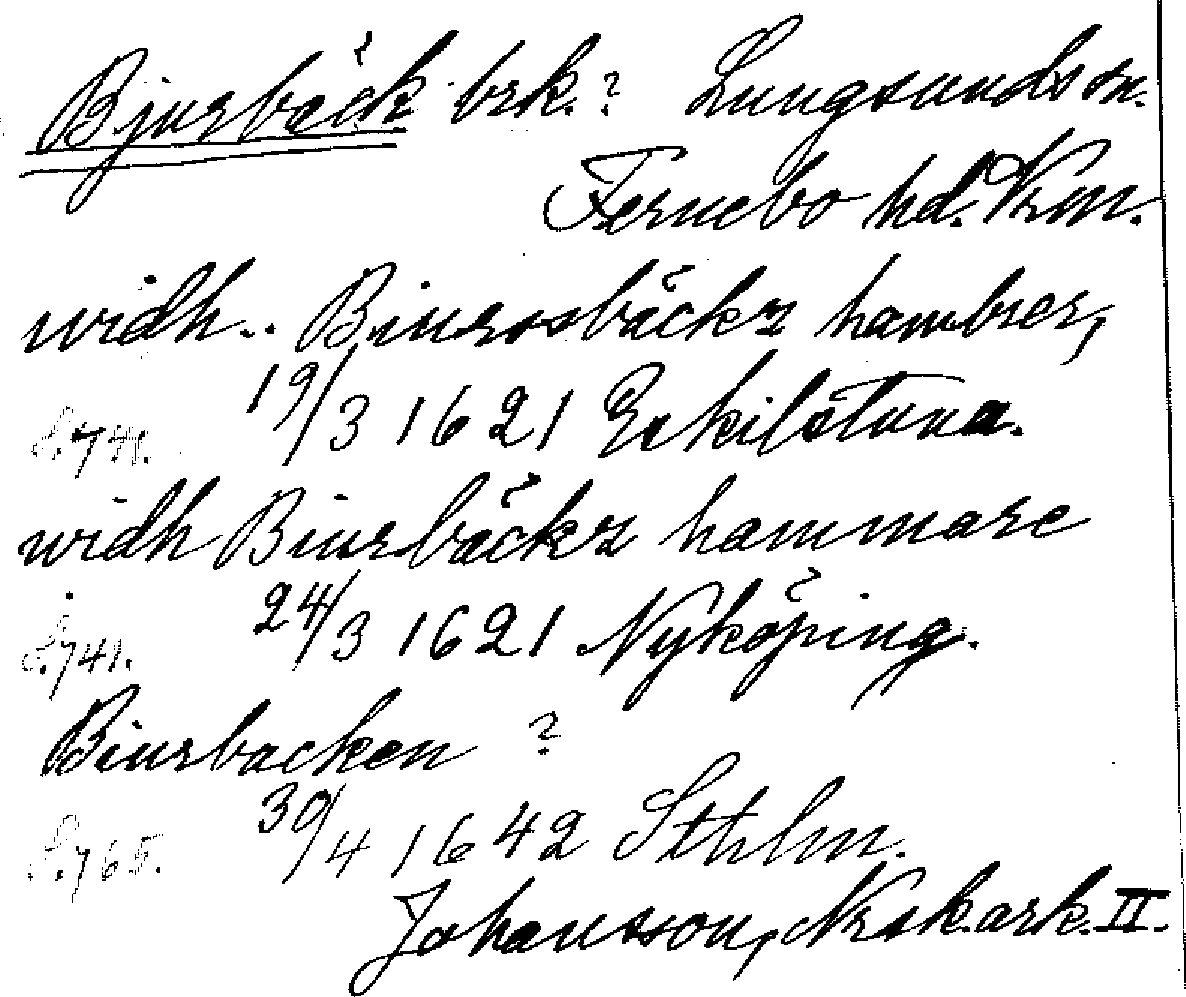 Bjurbäck brk.? Lungsunds sn.
Fernebo hd. Vrm.
widh.. Biurssbäckz hambrer,
S. 741. 19/3 1621 Eskilstuna.
widh Biurbäckz hammare
S. 741. 24/3 1621 Nyköping.
Biurbacken ?
S. 765. 30/4 1642 Sthlm.
Johansson, Nrsk. ark. II.